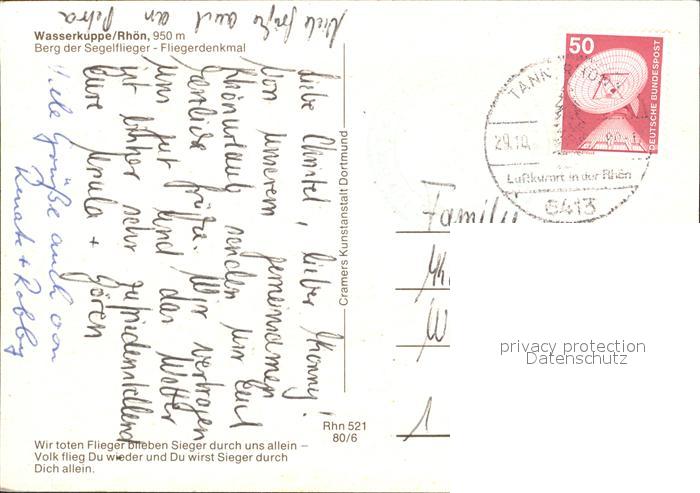 Wasserkuppe/Rhön, 950 m
Berg der Segelflieger - Fliegerdenkmal
Viele Grüße auch an Petra
Liebe Christel, lieber Manny!
Von unserem gemeinsamen
Rhönurlaub senden wir Euch
herzliche Grüße. Wir vertragen
uns gut und das Wetter
ist bisher sehr zufriedenstellend
Eure Ursula + Sören
Viele Grüße auch von
Renate + Robby
Cramers Kunstanstalt Dortmund
Rhn 521
80/6
Wir toten Flieger blieben Sieger durch uns allein –
Volk flieg Du wieder und Du wirst Sieger durch
Dich allein.
50
DEUTSCHE BUNDESPOST
TANN RHÖN
29.10.
Luftkurort in der Rhön
6413
Familie
W
1
privacy protection
Datenschutz